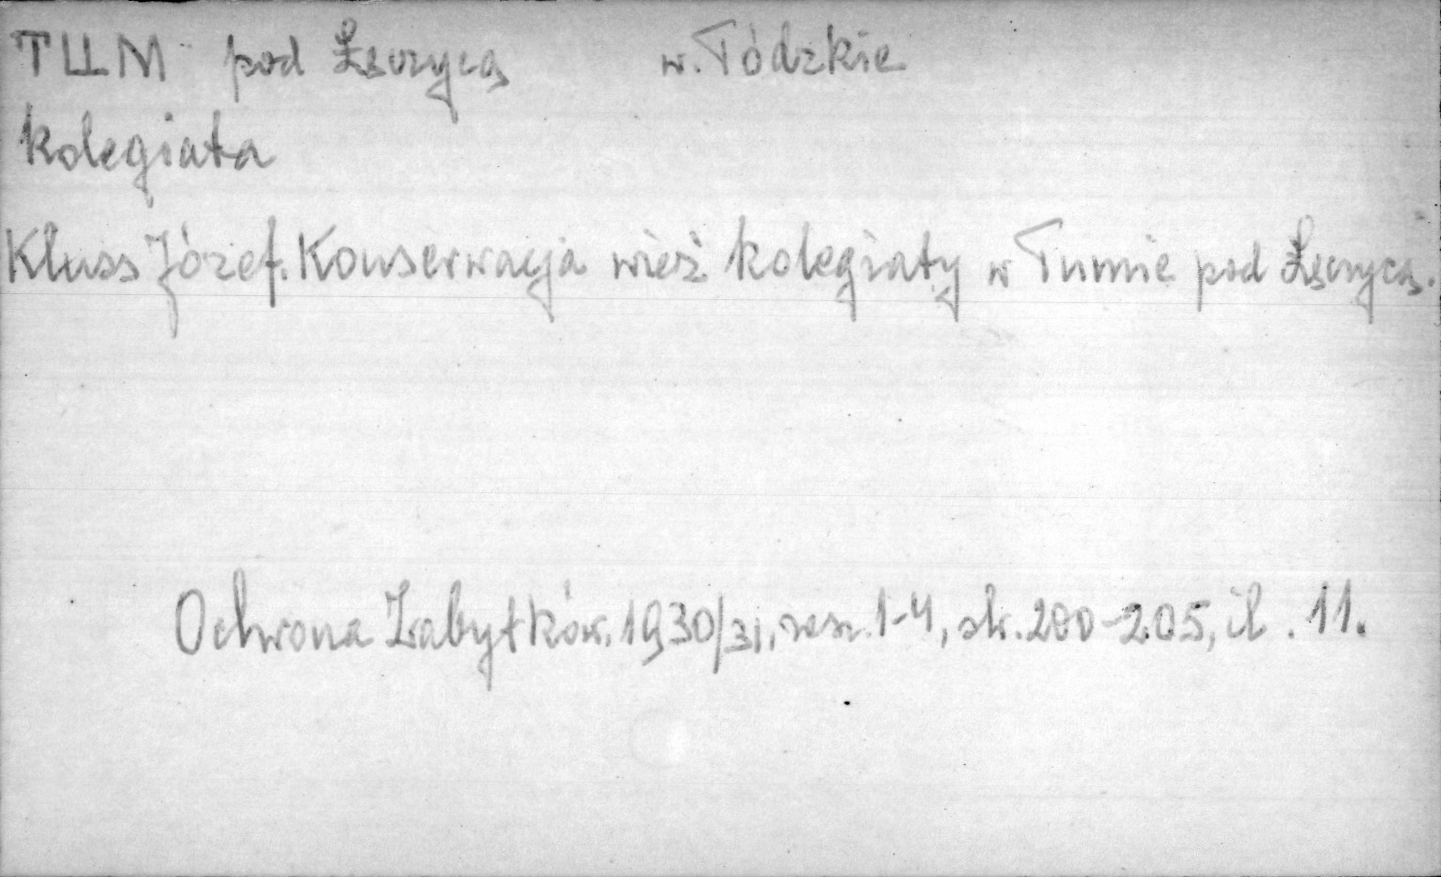 TUM pod Łęczycą w. Łódzkie
kolegiata
Kluss Józef. Konserwacja wież kolegiaty w Tumie pod Łęczycą.
Ochrona Zabytków. 1930/31, zesz. 1-4, str. 200-205, il. 11.